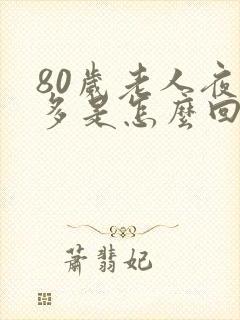 80歲老人夜
多是怎麼回
蕭翡妃